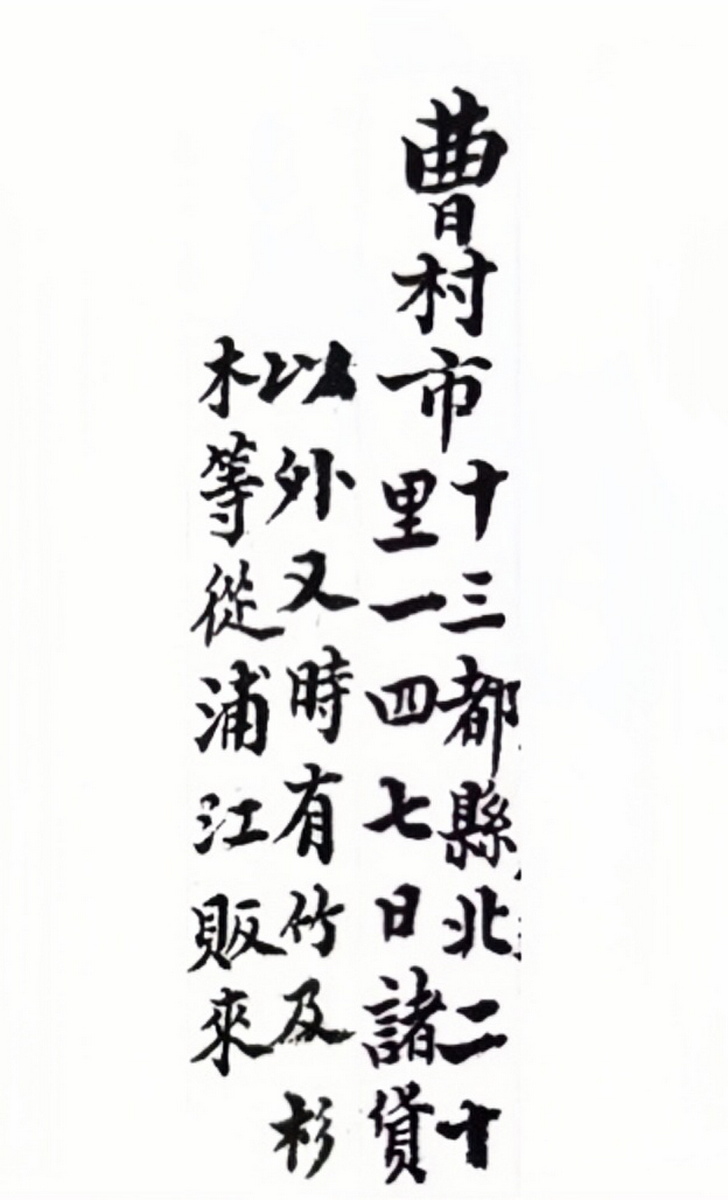 曹村市
十三都縣北二十
里一四七日諸貨
以外又時有竹及杉
木等從浦江販來